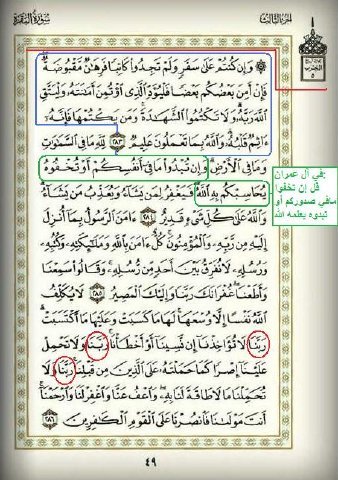 الجزء الثالث
سورة البقرة
الحزب
٥
۞ وَإِن كُنتُمْ عَلَىٰ سَفَرٍ وَلَمْ تَجِدُوا۟ كَاتِبًا فَرِهَٰنٌ مَّقْبُوضَةٌ
فَإِنْ أَمِنَ بَعْضُكُم بَعْضًا فَلْيُؤَدِّ ٱلَّذِى ٱؤْتُمِنَ أَمَٰنَتَهُۥ وَلْيَتَّقِ
ٱللَّهَ رَبَّهُۥ وَلَا تَكْتُمُوا۟ ٱلشَّهَٰدَةَ وَمَن يَكْتُمْهَا فَإِنَّهُۥٓ
ءَاثِمٌ قَلْبُهُۥ وَٱللَّهُ بِمَا تَعْمَلُونَ عَلِيمٌ ٢٨٣ لِّلَّهِ مَا فِى ٱلسَّمَٰوَٰتِ
وَمَا فِى ٱلْأَرْضِ وَإِن تُبْدُوا۟ مَا فِىٓ أَنفُسِكُمْ أَوْ تُخْفُوهُ
يُحَاسِبْكُم بِهِ ٱللَّهُ فَيَغْفِرُ لِمَن يَشَآءُ وَيُعَذِّبُ مَن يَشَآءُ
وَٱللَّهُ عَلَىٰ كُلِّ شَىْءٍ قَدِيرٌ ٢٨٤ ءَامَنَ ٱلرَّسُولُ بِمَآ أُنزِلَ
إِلَيْهِ مِن رَّبِّهِۦ وَٱلْمُؤْمِنُونَ كُلٌّ ءَامَنَ بِٱللَّهِ وَمَلَٰٓئِكَتِهِۦ وَكُتُبِهِۦ
وَرُسُلِهِۦ لَا نُفَرِّقُ بَيْنَ أَحَدٍ مِّن رُّسُلِهِۦ وَقَالُوا۟ سَمِعْنَا
وَأَطَعْنَا غُفْرَانَكَ رَبَّنَا وَإِلَيْكَ ٱلْمَصِيرُ ٢٨٥ لَا يُكَلِّفُ
ٱللَّهُ نَفْسًا إِلَّا وُسْعَهَا لَهَا مَا كَسَبَتْ وَعَلَيْهَا مَا ٱكْتَسَبَتْ
رَبَّنَا لَا تُؤَاخِذْنَآ إِن نَّسِينَآ أَوْ أَخْطَأْنَا رَبَّنَا وَلَا تَحْمِلْ
عَلَيْنَآ إِصْرًا كَمَا حَمَلْتَهُۥ عَلَى ٱلَّذِينَ مِن قَبْلِنَا رَبَّنَا وَلَا
تُحَمِّلْنَا مَا لَا طَاقَةَ لَنَا بِهِۦ وَٱعْفُ عَنَّا وَٱغْفِرْ لَنَا وَٱرْحَمْنَآ
أَنتَ مَوْلَىٰنَا فَٱنصُرْنَا عَلَى ٱلْقَوْمِ ٱلْكَٰفِرِينَ ٢٨٦
٤٩
في آل عمران:
قل إن تخفوا
مافي صدوركم أو
تبدوه يعلمه الله